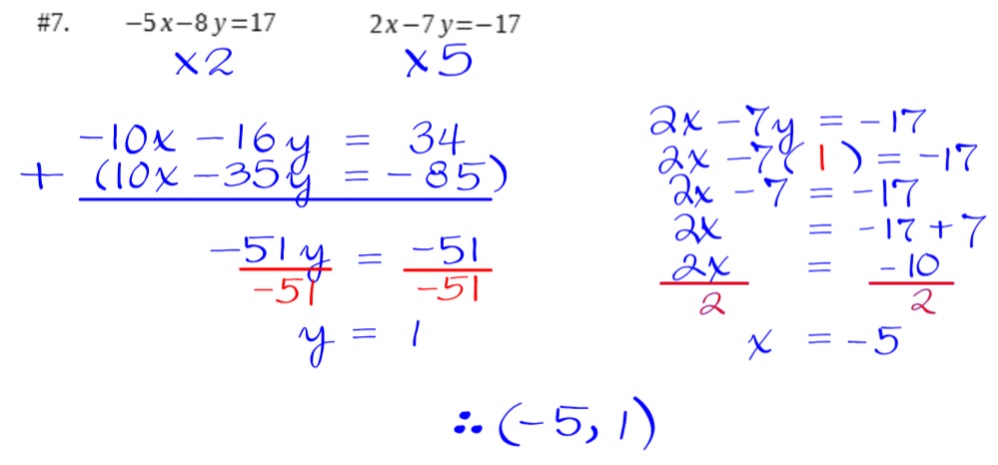 #7. −5x−8y=17 2x−7y=−17
×2 ×5
-10x - 16y = 34
+ (10x - 35y = - 85)
-51y = -51
-51 -51
y = 1
2x - 7y = -17
2x - 7( 1 ) = -17
2x - 7 = -17
2x = -17 + 7
2x = -10
2 2
x = -5
∴ (-5, 1)